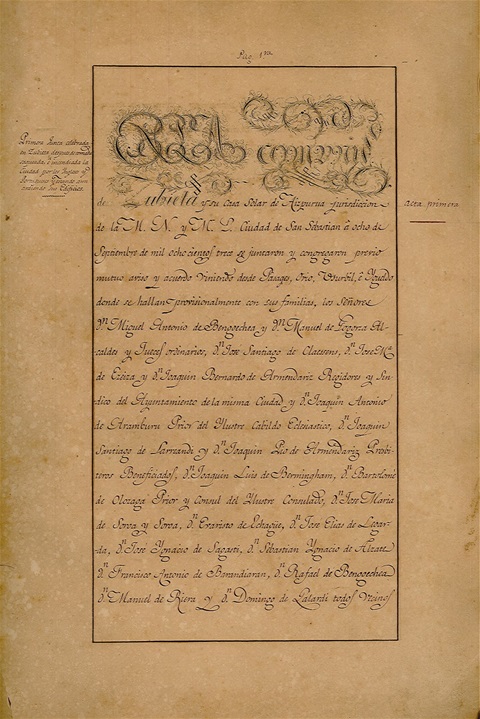 Pag. 1ra
Primera Junta celebrada
en Zubieta despues de
Ciudad por los
EN LA Comunidad
de Zubieta y su Casa Solar de Aizpurua jurisdiccion
de la M. N. y M. L. Ciudad de San Sebastian á ocho de
Septiembre de mil ochocientos trece se juntaron y congregaron previo
mutuo aviso y acuerdo viniendo desde Pasages, Orio, Usurbil, é Ygueldo
donde se hallan provisionalmente con sus familias, los Señores
Dn. Miguel Antonio de Bengoechea y Dn. Manuel de Gogorza Al-
caldes y Jueces ordinarios, Dn. José Santiago de Claessens, Dn. Jose Ma.
de Eceiza y Dn. Joaquin Bernardo de Armendariz Regidores y Sin-
dico del Ayuntamiento de la misma Ciudad y Dn. Joaquin Antonio
de Aramburu Prior del Ylustre Cabildo Eclesiastico, Dn. Joaquin
Santiago de Larreandi y Dn. Joaquin Pio de Armendariz Presbi-
teros Beneficiados, Dn. Joaquin Luis de Bermingham, Dn. Bartolomé
de Olozaga Prior y Consul del Ylustre Consulado, Dn. Jose Maria
de Soroa y Soroa, Dn. Evaristo de Echagüe, Dn. Jose Elias de Legar-
da, Dn. Jose Ygnacio de Sagasti, Dn. Sebastian Ygnacio de Alzate
Dn. Francisco Antonio de Barandiaran, Dn. Rafael de Bengoechea
Dn. Manuel de Riera y Dn. Domingo de Galardi todos Vecinos
acta primera